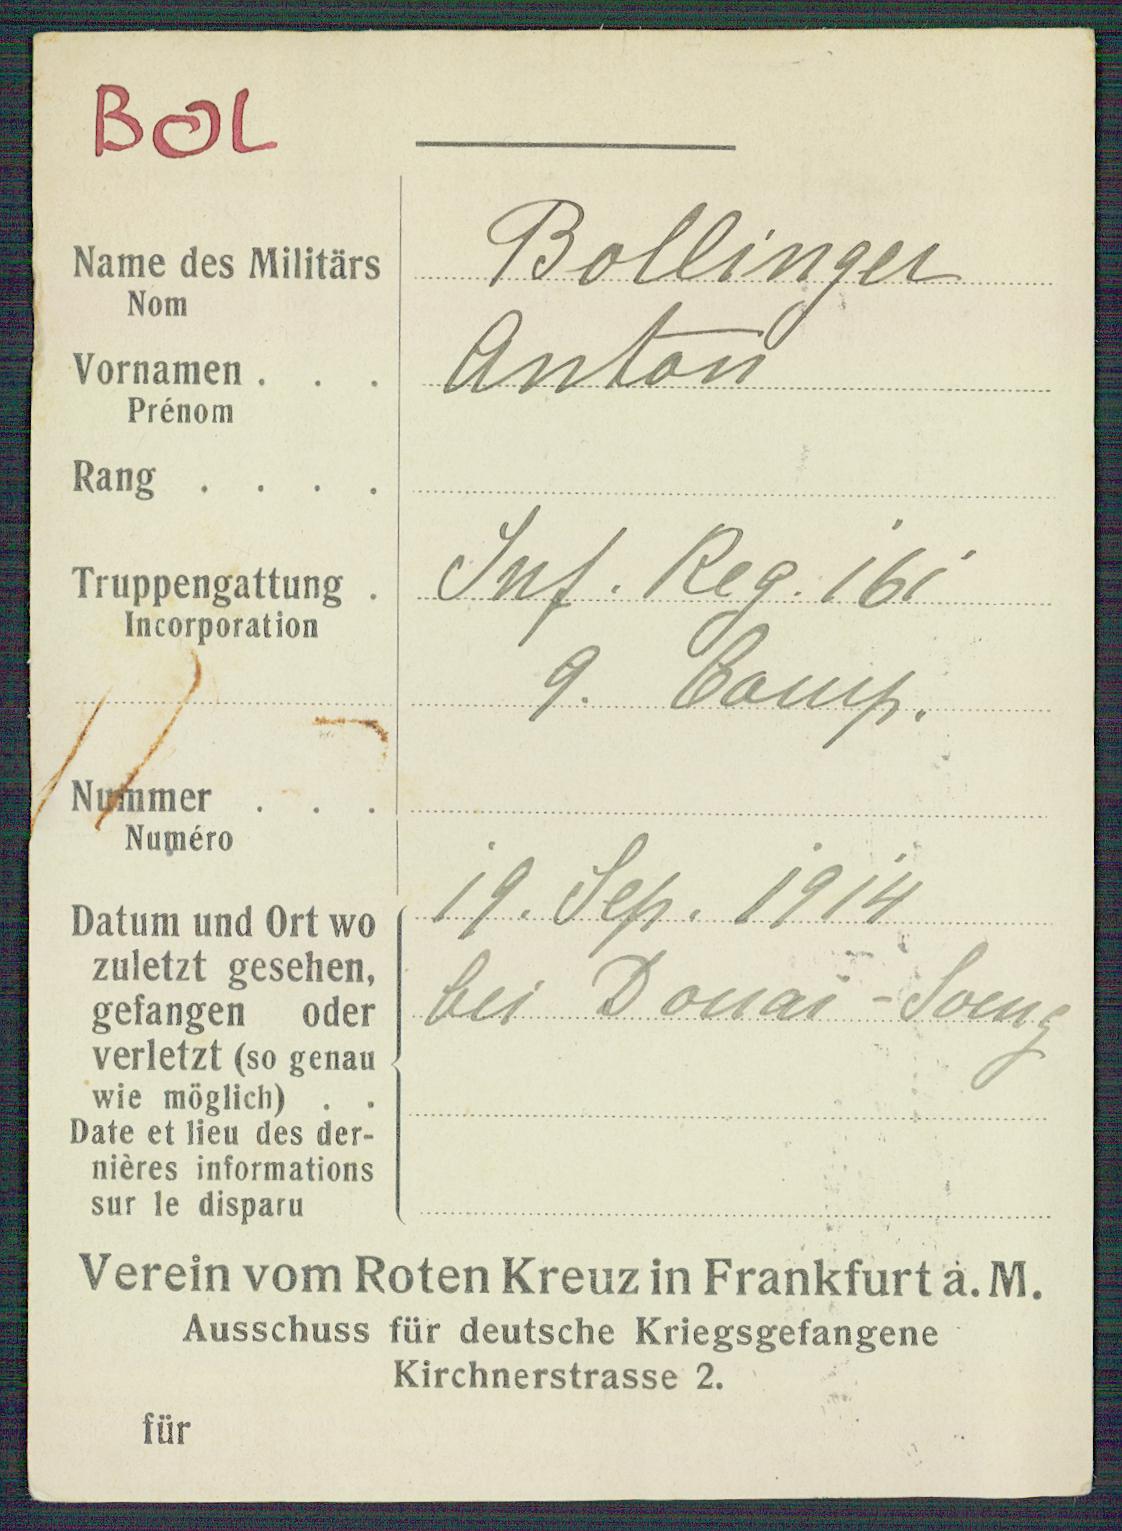 BOL
Name des Militärs Bollinger
Nom
Vornamen . . . Anton
Prénom
Rang . . . .
Truppengattung . Inf. Reg. 161
Incorporation
9. Comp.
Nummer . . .
Numéro
Datum und Ort wo 19. Sep. 1914
zuletzt gesehen,
gefangen oder bei Douai -
verletzt (so genau
wie möglich) . .
Date et lieu des der-
nières informations
sur le disparu
Verein vom Roten Kreuz in Frankfurt a. M.
Ausschuss für deutsche Kriegsgefangene
Kirchnerstrasse 2.
für